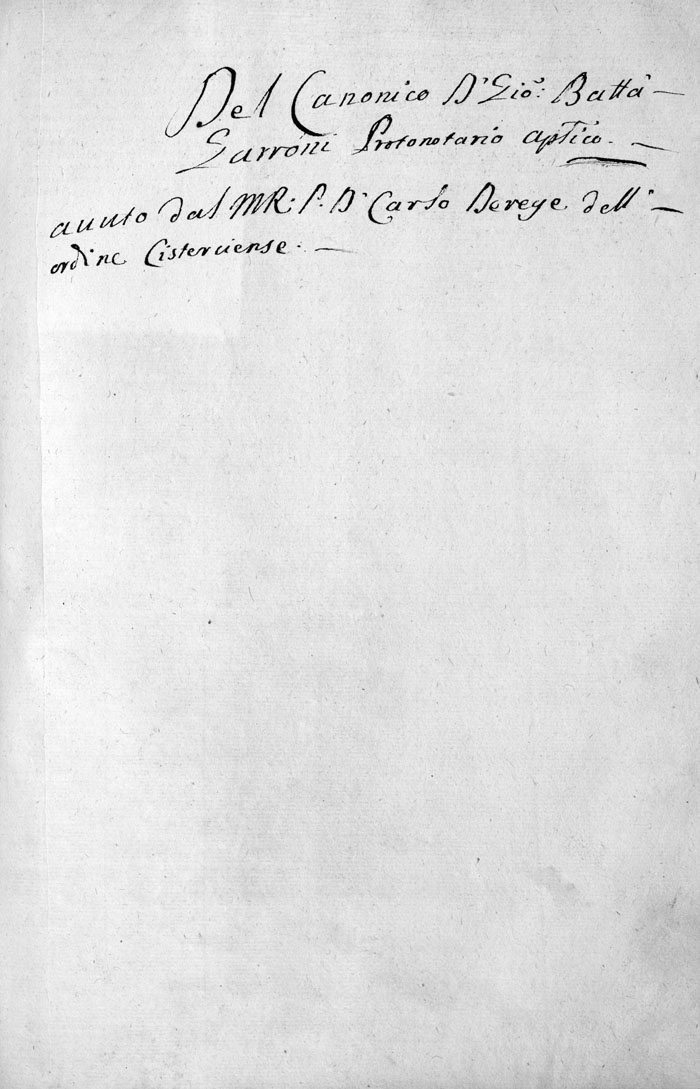 Del Canonico D' Gio: Batta –
Garroni Protonotario aptico. –
auuto dal MR: P. D' Carlo Derege dell' –
ordine Cisterciense. –